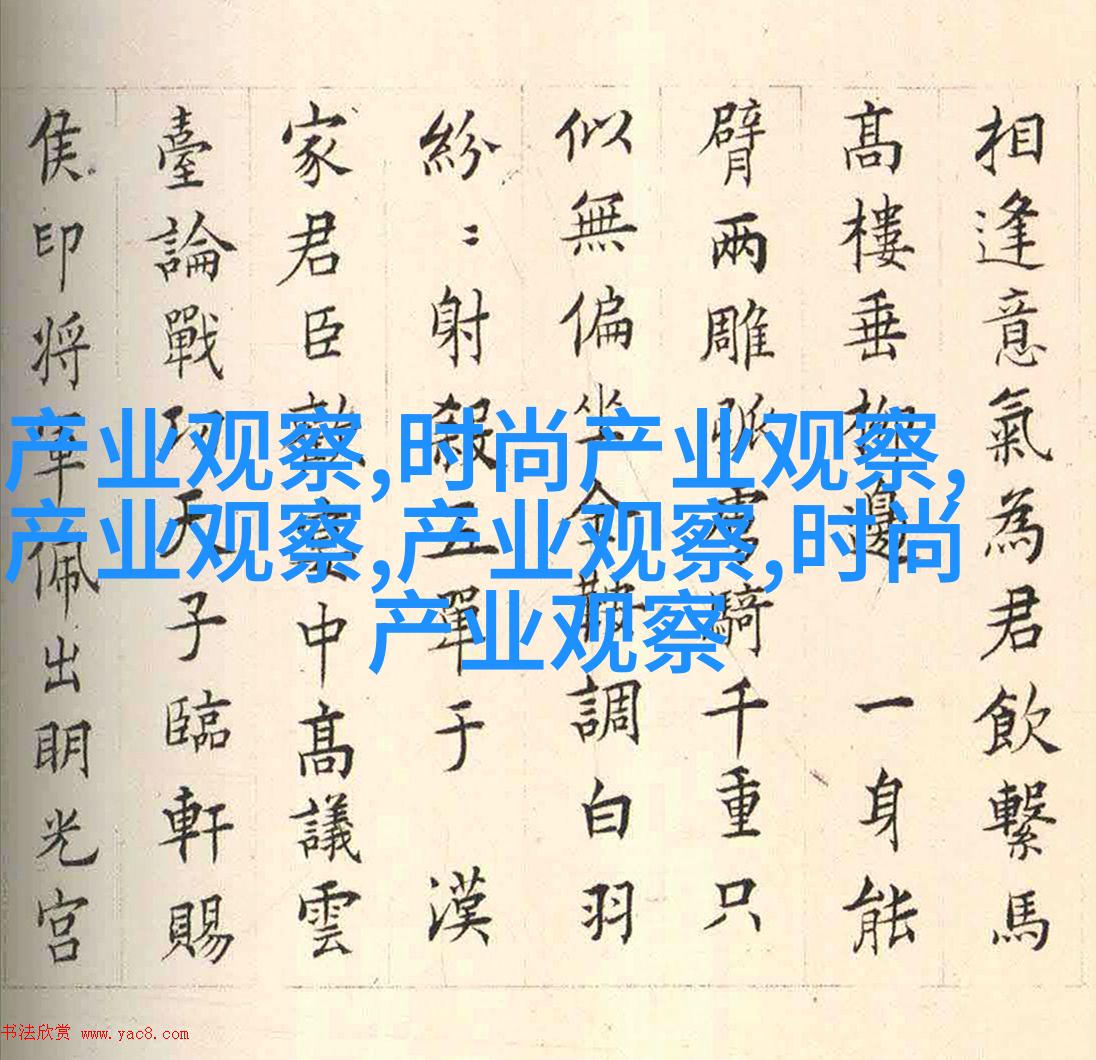 相逢意氣為君飲繫馬
髙樓垂柳邊 一身能
臂兩雕弧虜騎千重只
似無偏坐金鞍調白羽
紛〻射殺五單于 漢
家君臣歡宴中髙議雲
臺論戰功天子臨軒賜
侯印将軍佩出明光宮
产业观察,时尚产业观察,
产业观察,产业观察,时尚
产业观察
书法欣赏 www.yac8.com